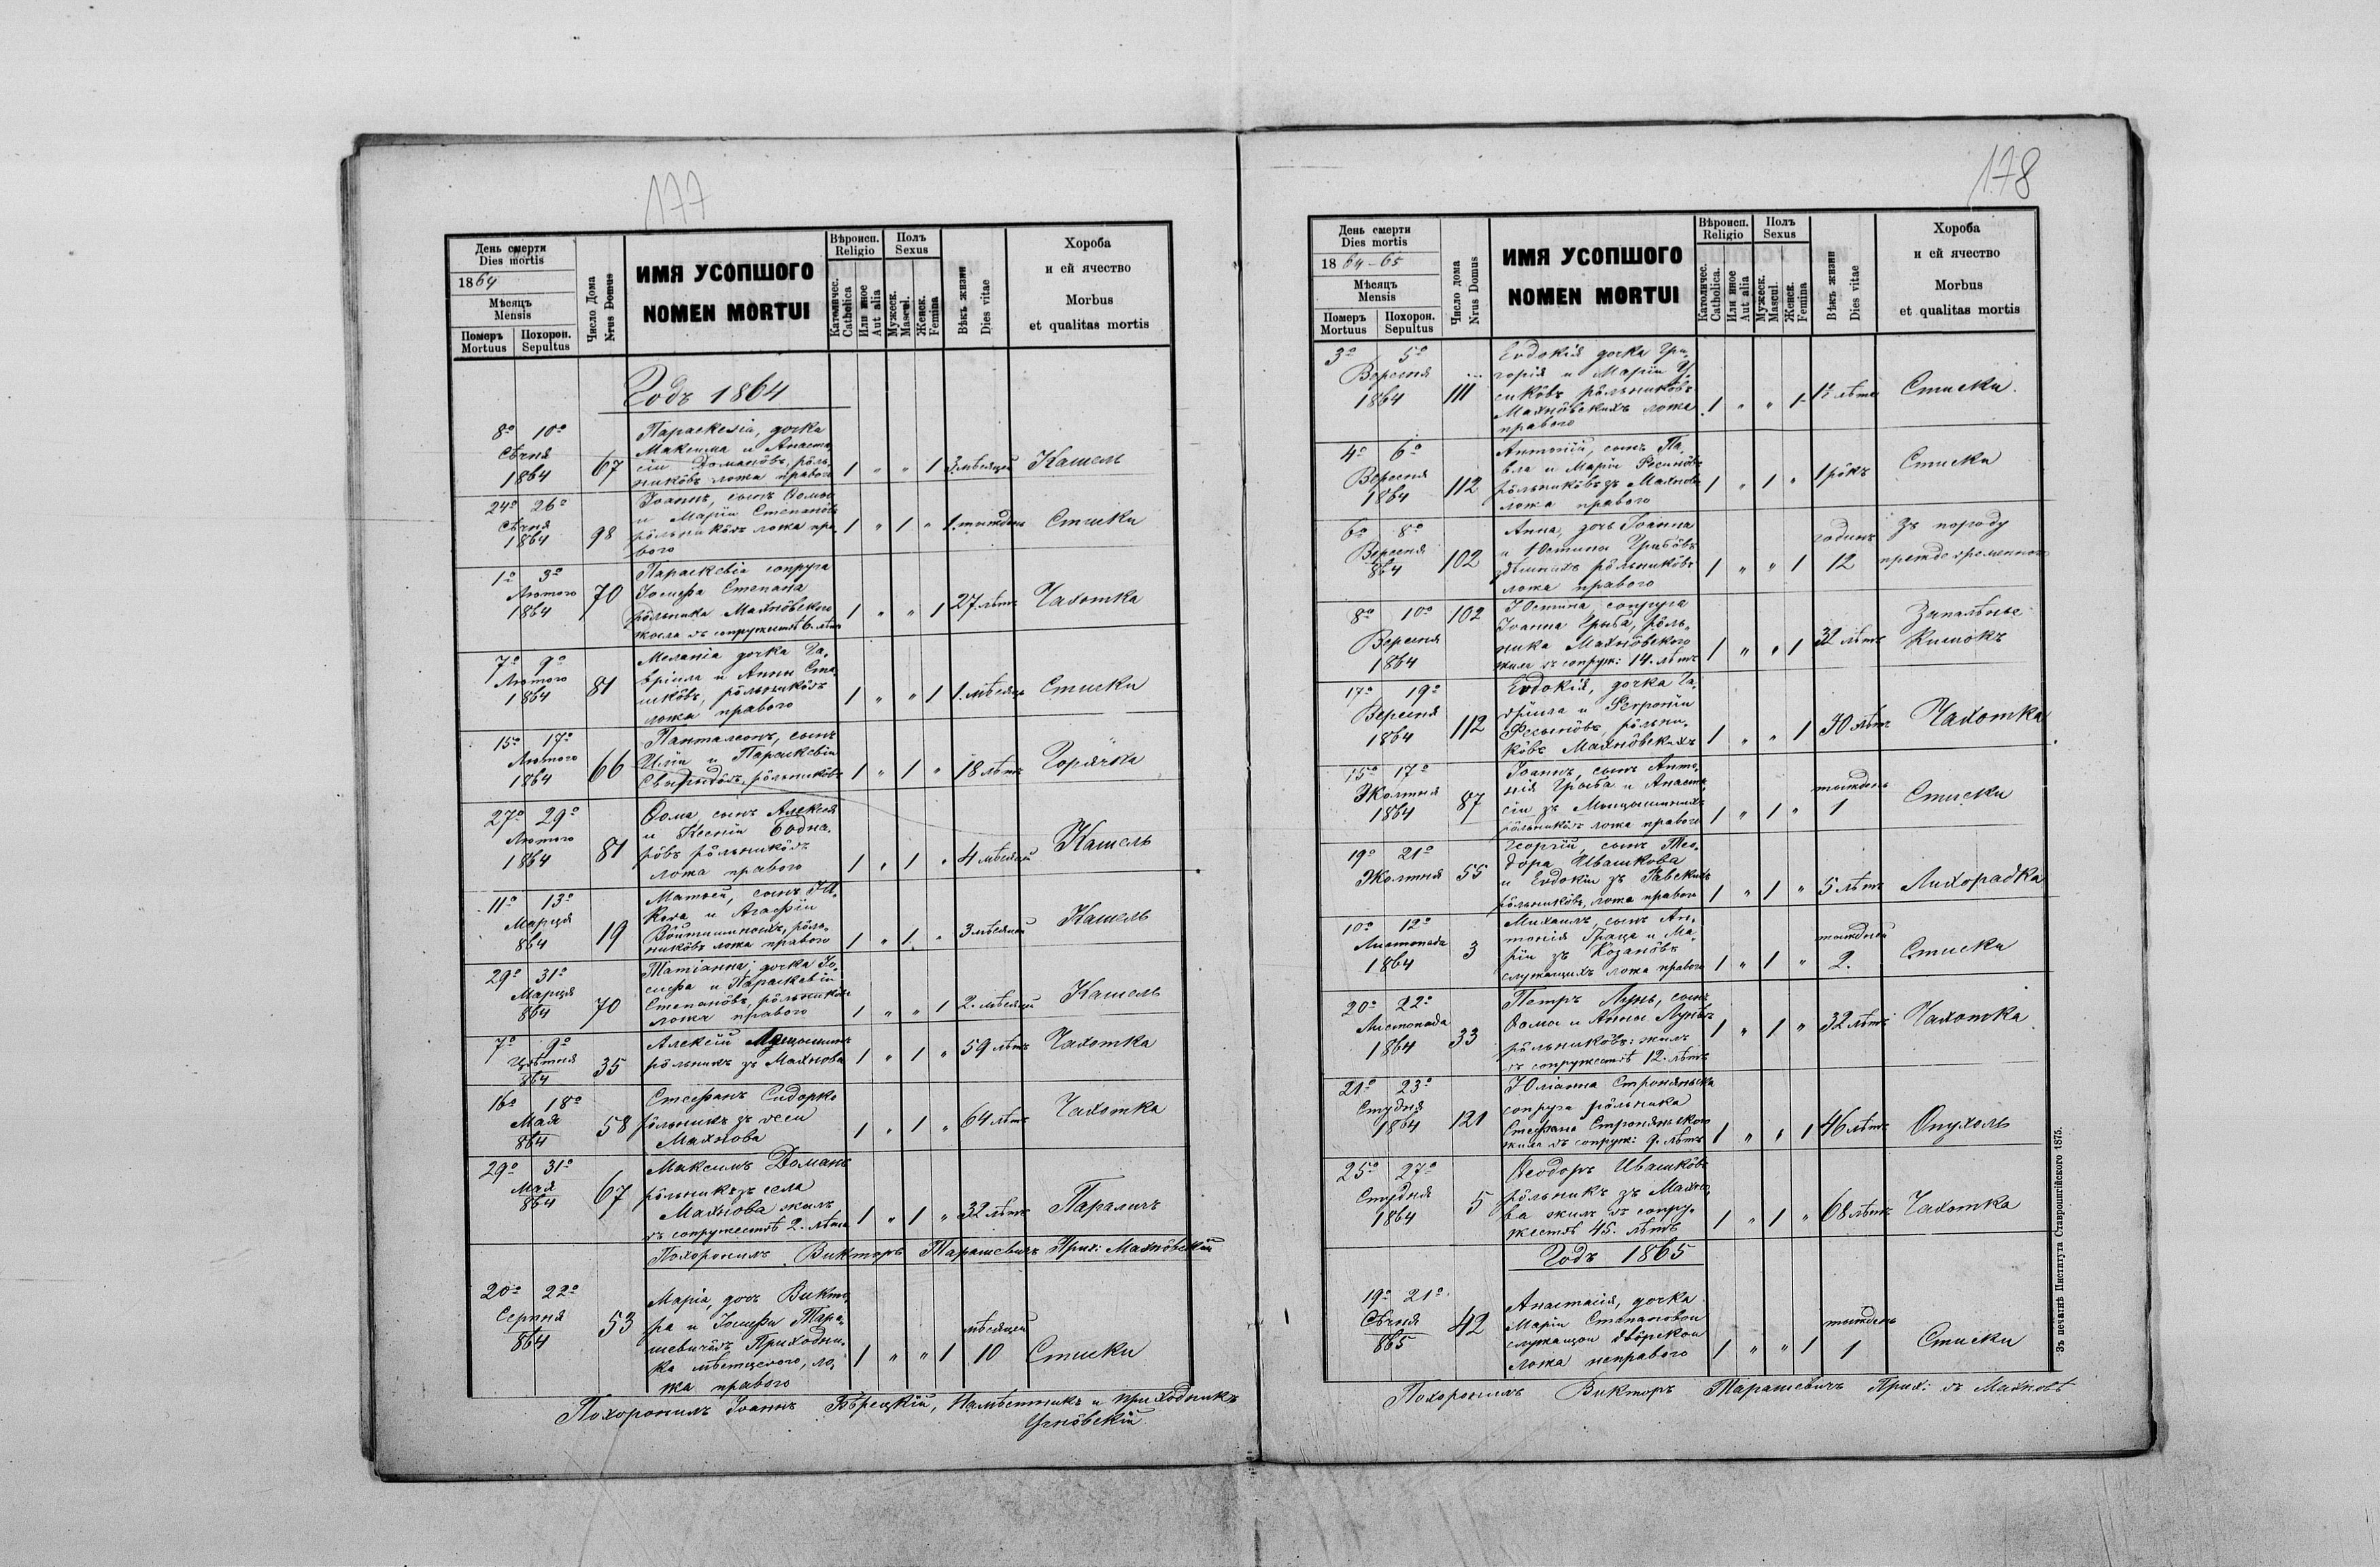 177
День смерти
Dies mortis
1864
Мѣсяцъ
Mensis
Померъ Похорон.
Mortuus Sepultus
Число Дома
Nrus Domus
ИМЯ УСОПШОГО
NOMEN MORTUI
Вѣроисп.
Religio
Католичес.
Catholica
Или иное
Aut alia
Полъ
Sexus
Мужеск.
Mascul.
Женск.
Femina
Вѣкъ жизни
Dies vitae
Хороба
и ей ячество
Morbus
et qualitas mortis
Годъ 1864
8º 10º
Сѣчня
1864
67
Параскевіа, дочка
Максима и Анаста,
сіи Домановъ, рôль,
никôвъ ложа правого
1 " " 1 мѣсяцей Кашель
24º 26º
Сѣчня
1864
98
Іоаннъ, сынъ Ѳомы
и Маріи Степанôвъ
рôльникôвъ ложа пра,
вого
1 " 1 " 1. тыждень Стиски
1º 3º
Лютого
1864
70
Параскевіа сопруга
Іосифа Степана
рôльника Махнôвского
жила въ сопружествѣ 6 лѣтъ
1 " " 1 27 лѣтъ Чахотка
7º 9º
Лютого
1864
81
Меланіа дочка Га,
вріила и Анны
рôльникôвъ
ложа правого
1 " " 1 1. мѣсяць Стиски
15º 17º
Лютого
1864
66
Панталеонъ, сынъ
Иліи и Параскевіи
рôльникôвъ
1 " 1 " 18 лѣтъ Горячка
27º 29º
Лютого
1864
81
Ѳома, сынъ Алексія
и Ксеніи Бодна,
рôвъ рôльникôвъ
ложа правого
1 " 1 " 4 мѣсяцей Кашель
11º 13º
Марця
864
19
Матѳей, сынъ
и Агафіи
рôль,
никôвъ ложа правого
1 " 1 " 3 мѣсяцей Кашель
29º 31º
Марця
864
70
Татіанна, дочка Іо,
сифа и Параскевіи
Степанôвъ, рôльникôвъ
ложа правого
1 " " 1 2. мѣсяцей Кашель
7º 9º
Цвѣтня
864
35
Алексій
рôльникъ зъ Махнова
1 " 1 " 59 лѣтъ Чахотка
16º 18º
Мая
864
58
Стефанъ Сидорко
рôльникъ зъ веси
Махнова
1 " 1 " 64 лѣтъ Чахотка
29º 31º
Мая
864
67
Максимъ Доманъ
рôльникъ зъ села
Махнова жилъ
въ сопружествѣ 2. лѣта
1 " 1 " 32 лѣтъ Паралич
Похоронилъ Викторъ Тарашевичъ Прих: Махнôвскій
20º 22º
Серпня
864
53
Маріа, дочь Викто,
ра и Іосифы Тара,
шевичôвъ Приходни,
ка мѣстцевого, ло,
жа правого
мѣсяцей
1 " " 1 10 Стиски
Похоронилъ Іоаннъ Бѣрецкій, Намѣстникъ и приходникъ
Угнôвскій
178
День смерти
Dies mortis
1864-65
Мѣсяцъ
Mensis
Померъ Похорон.
Mortuus Sepultus
Число дома
Nrus Domus
ИМЯ УСОПШОГО
NOMEN MORTUI
Вѣроисп.
Religio
Католичес.
Catholica.
Или иное
Aut alia
Полъ
Sexus
Мужеск.
Mascul.
Женск.
Femina
Вѣкъ жизни
Dies vitae
Хороба
и ей ячество
Morbus
et qualitas mortis
3º 5º
Вересня
1864
111
Евдокія дочка Гри,
горія и Маріи
рôльникôвъ
Махнôвскихъ ложа
правого
1 " " 1 лѣта Стиски.
4º 6º
Вересня
1864
112
Антоній, сынъ Па,
вла и Маріи
рôльникôвъ зъ Махнова
ложа правого
1 " 1 " 1 рôкъ Стиски
6º 8º
Вересня
864
102
Анна, дочь Іоанна
и Юстины Грыбôвъ
рôльникôвъ
ложа правого
1 " " 1 годинъ 12 зъ породу
преждевременного
8º 10º
Вересня
1864
102
Юстина, сопруга
Іоанна Грыба, рôль,
ника Махнôвского
жила въ сопруж: 14. лѣтъ
1 " " 1 32 лѣтъ Запаленье
Кишокъ
17º 19º
Вересня
1864
112
Евдокія, дочка Га,
вріила и
рôльни,
кôвъ Махнôвскихъ
1 " " 1 30 лѣтъ Чахотка
15º 17º
Жолтня
1864
87
Іоаннъ, сынъ Анто,
нія Грыба и Анаста,
сіи зъ
рôльникôвъ ложа правого
тыждень
1 " 1 " 1 Стиски
19º 21º
Жолтня
55
Георгій, сынъ Тео,
дора Ивашкова
и Евдокіи зъ
рôльникôвъ, ложа правого
1 " 1 " 5 лѣтъ Лихорадка
10º 12º
Листопада
1864
3
Михаилъ, сынъ Ан,
тонія Граца и Ма,
ріи зъ Козанôвъ
служащихъ ложа правого
тыждней
1 " 1 " 2. Стиски
20º 22º
Листопада
1864
33
Петръ Лунь, сынъ
Ѳомы и Анны Лунôвъ
рôльникôвъ: жилъ
въ сопружествѣ 12. лѣтъ
1 " 1 " 32 лѣтъ Чахотка
21º 23º
Студня
1864
121
Юліанна
сопруга рôльника
Стефана
жила въ сопруж: 9. лѣтъ
1 " " 1 46 лѣтъ Опухоль
25º 27º
Студня
1864
5
Ѳеодоръ Ивашкôвъ
рôльникъ зъ Махно,
ва жилъ въ сопру,
жествѣ 45. лѣтъ
1 " 1 " 68 лѣтъ Чахотка
Годъ 1865
19º 21º
Сѣчня
865
42
Анастасія, дочка
Маріи Степановой
служащои двôрскои
ложа неправого
тыждень
1 " " 1 1 Стиски
Похоронилъ Викторъ Тарашевичъ Прих: въ Махновѣ
Зъ печатнѣ Института Ставропигійского 1875.